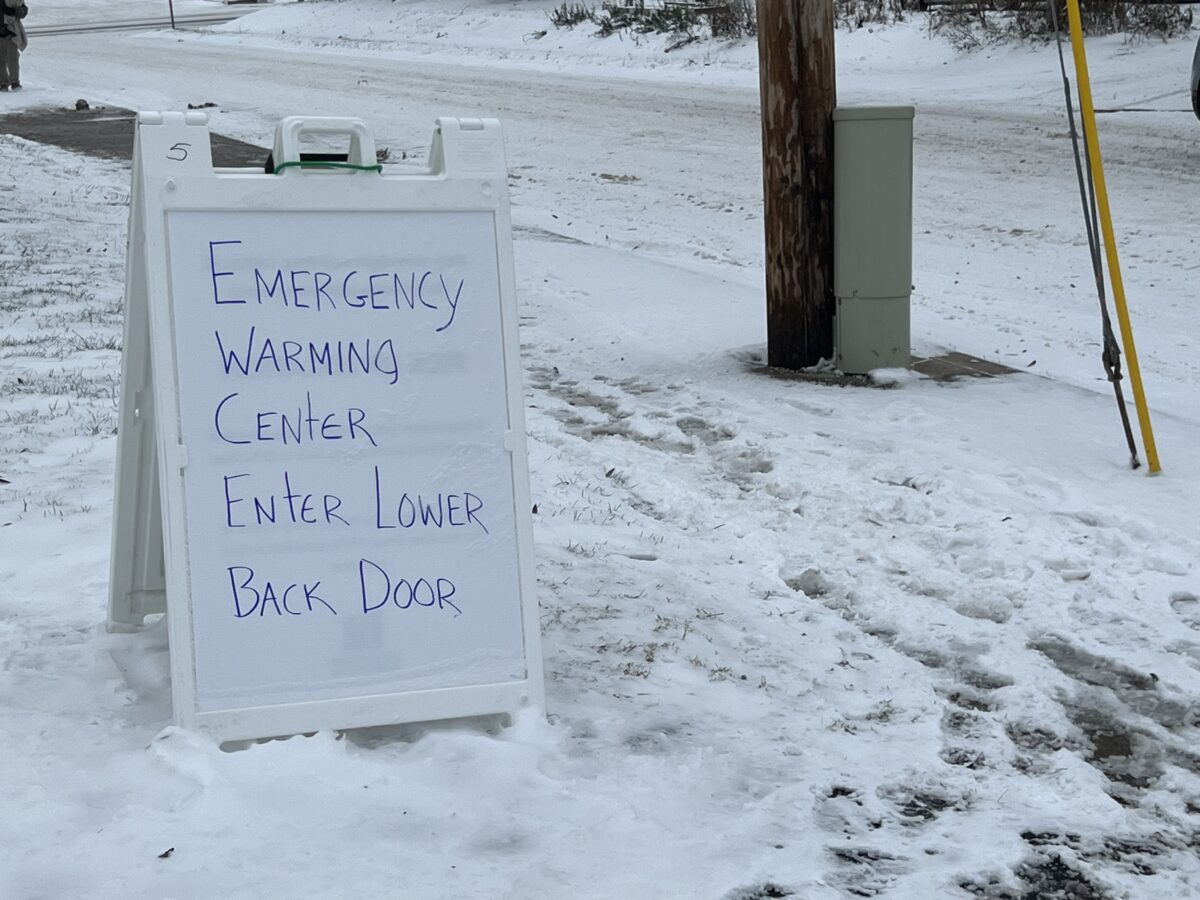 5
EMERGENCY
WARMING
CENTER
ENTER LOWER
BACK DOOR